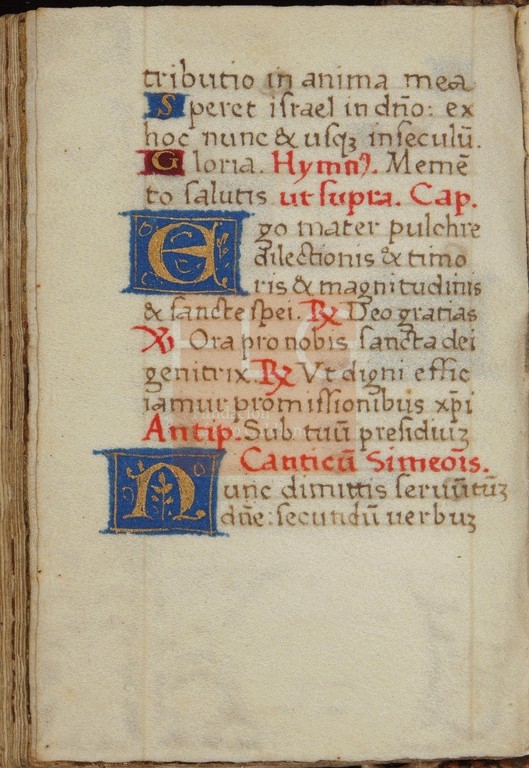 tributio in anima mea
Speret israel in dño: ex
hoc nunc & usqȝ inseculũ.
Gloria. Hymnꝰ. Memẽ
to salutis ut supra. Cap.
Ego mater pulchre
dilectionis & timo
ris & magnitudinis
& sancte spei. ℞ Deo gratias
℣ Ora pro nobis sancta dei
genitrix. ℞ Vt digni effic
iamur promissionibus xp̃i
Antip. Sub tuũ presidiuȝ
Canticũ Simeõis.
Nunc dimittis seruũ tũȝ
dñe: secundũ uerbuȝ